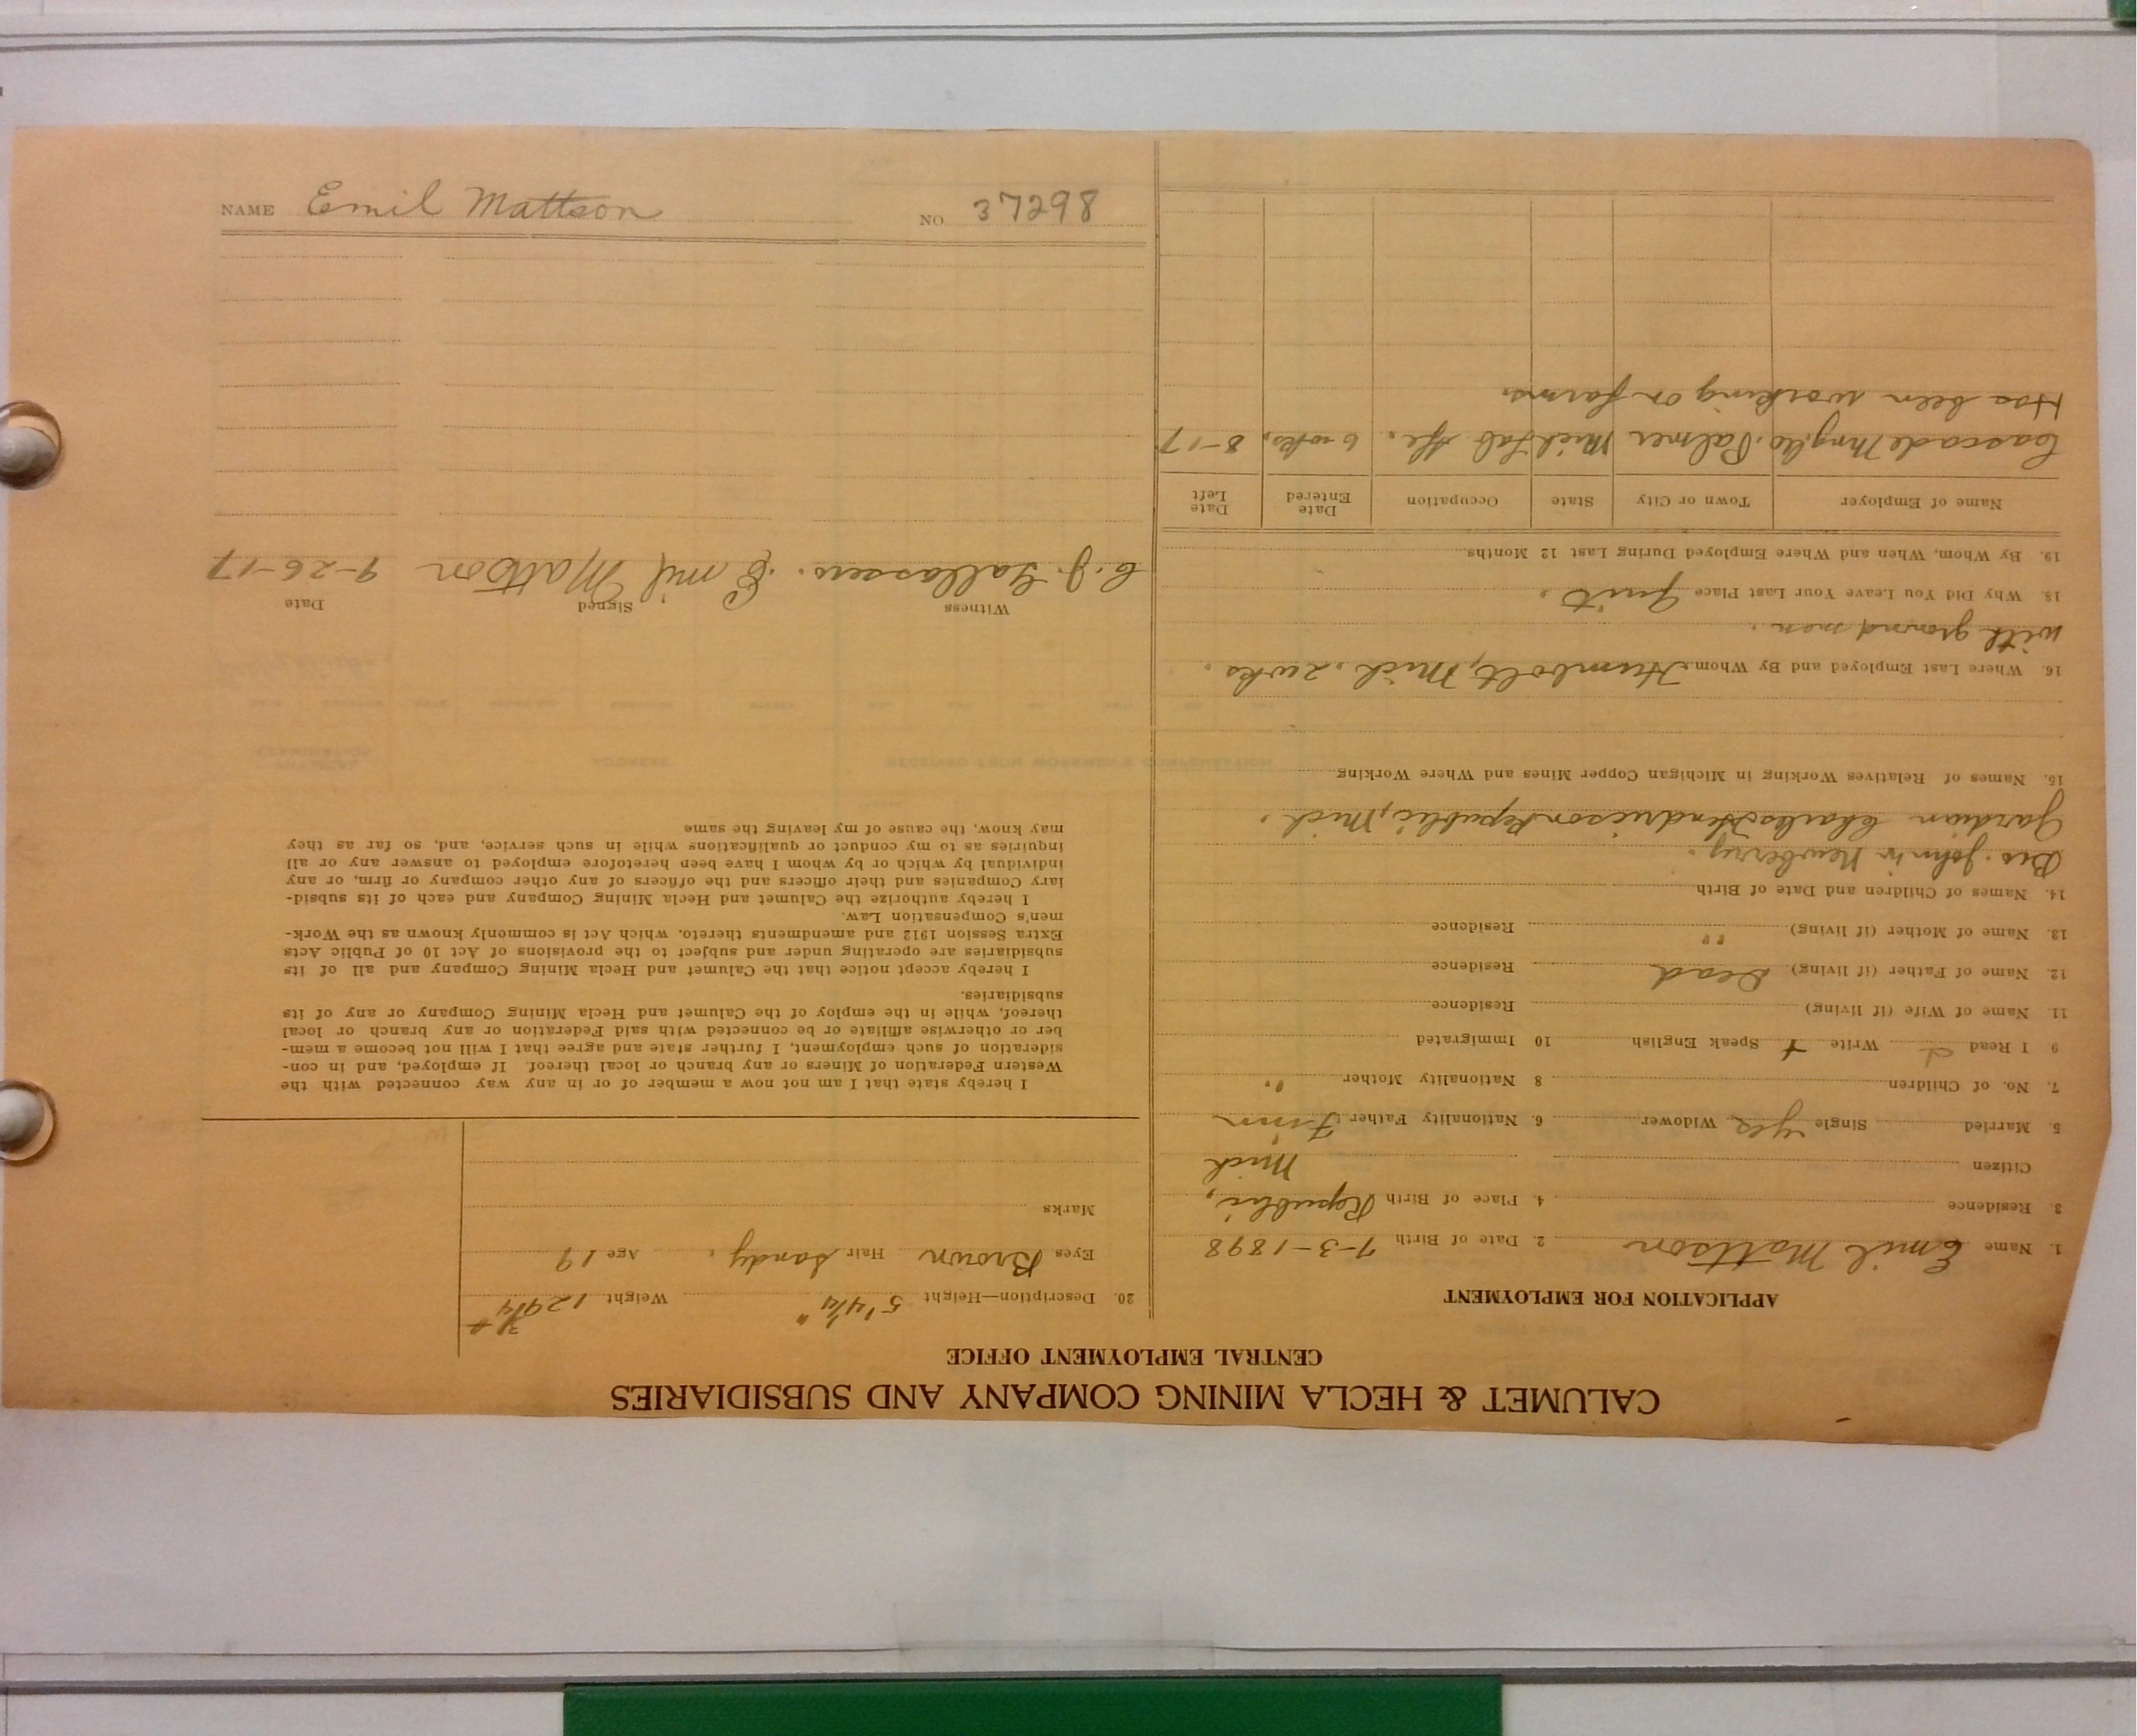 CALUMET & HECLA MINING COMPANY AND SUBSIDIARIES
CENTRAL EMPLOYMENT OFFICE
APPLICATION FOR EMPLOYMENT
1. Name Emil Mattson 2. Date of Birth 7-3-1898
3. Residence 4. Place of Birth Republic,
Citizen Mich
5. Married Single yes Widower 6. Nationality Father Finn
7. No. of Children 8 Nationality Mother "
9 I Read Write + Speak English 10 Immigrated
11. Name of Wife (if living) Residence
12. Name of Father (if living) Dead Residence
13. Name of Mother (if living) " Residence
14. Names of Children and Date of Birth
Bro. John in Newberry.
Gardian Charles Hendricson Republic, Mich.
15. Names of Relatives Working in Michigan Copper Mines and Where Working
16. Where Last Employed and By Whom Humbolt, Mich. 2 wks.
with ground man.
18. Why Did You Leave Your Last Place Quit.
19. By Whom, When and Where Employed During Last 12 Months
Name of Employer Town or City State Occupation Date Entered Date Left
Cascade Mng. Co. Palmer Mich Lab sfc. 6 wks, 8-17
Has been working on farms
20. Description—Height 5' 4 1/4" Weight 129 3/4 #
Eyes Brown Hair Sandy. Age 19
Marks
I hereby state that I am not now a member of or in any way connected with the
Western Federation of Miners or any branch or local thereof. If employed, and in con-
sideration of such employment, I further state and agree that I will not become a mem-
ber or otherwise affiliate or be connected with said Federation or any branch or local
thereof, while in the employ of the Calumet and Hecla Mining Company or any of its
subsidiaries.
I hereby accept notice that the Calumet and Hecla Mining Company and all of its
subsidiaries are operating under and subject to the provisions of Act 10 of Public Acts
Extra Session 1912 and amendments thereto, which Act is commonly known as the Work-
men's Compensation Law.
I hereby authorize the Calumet and Hecla Mining Company and each of its subsid-
iary Companies and their officers and the officers of any other company or firm, or any
individual by which or by whom I have been heretofore employed to answer any or all
inquiries as to my conduct or qualifications while in such service, and, so far as they
may know, the cause of my leaving the same
Witness Signed Date
C. J. Emil Mattson 9-26-17
NAME Emil Mattson NO. 37298